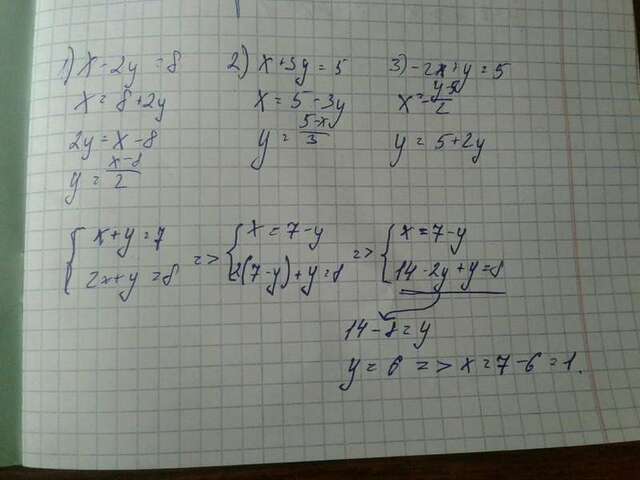 1) x - 2y = 8
x = 8 + 2y
2y = x - 8
y = \frac{x-8}{2}
2) x + 3y = 5
x = 5 - 3y
y = \frac{5-x}{3}
3) -2x + y = 5
x = \frac{y-5}{2}
y = 5 + 2y
{ x + y = 7 => { x = 7 - y => { x = 7 - y
2x + y = 8 2(7 - y) + y = 8 14 - 2y + y = 8
14 - 8 = y
y = 6 => x = 7 - 6 = 1.